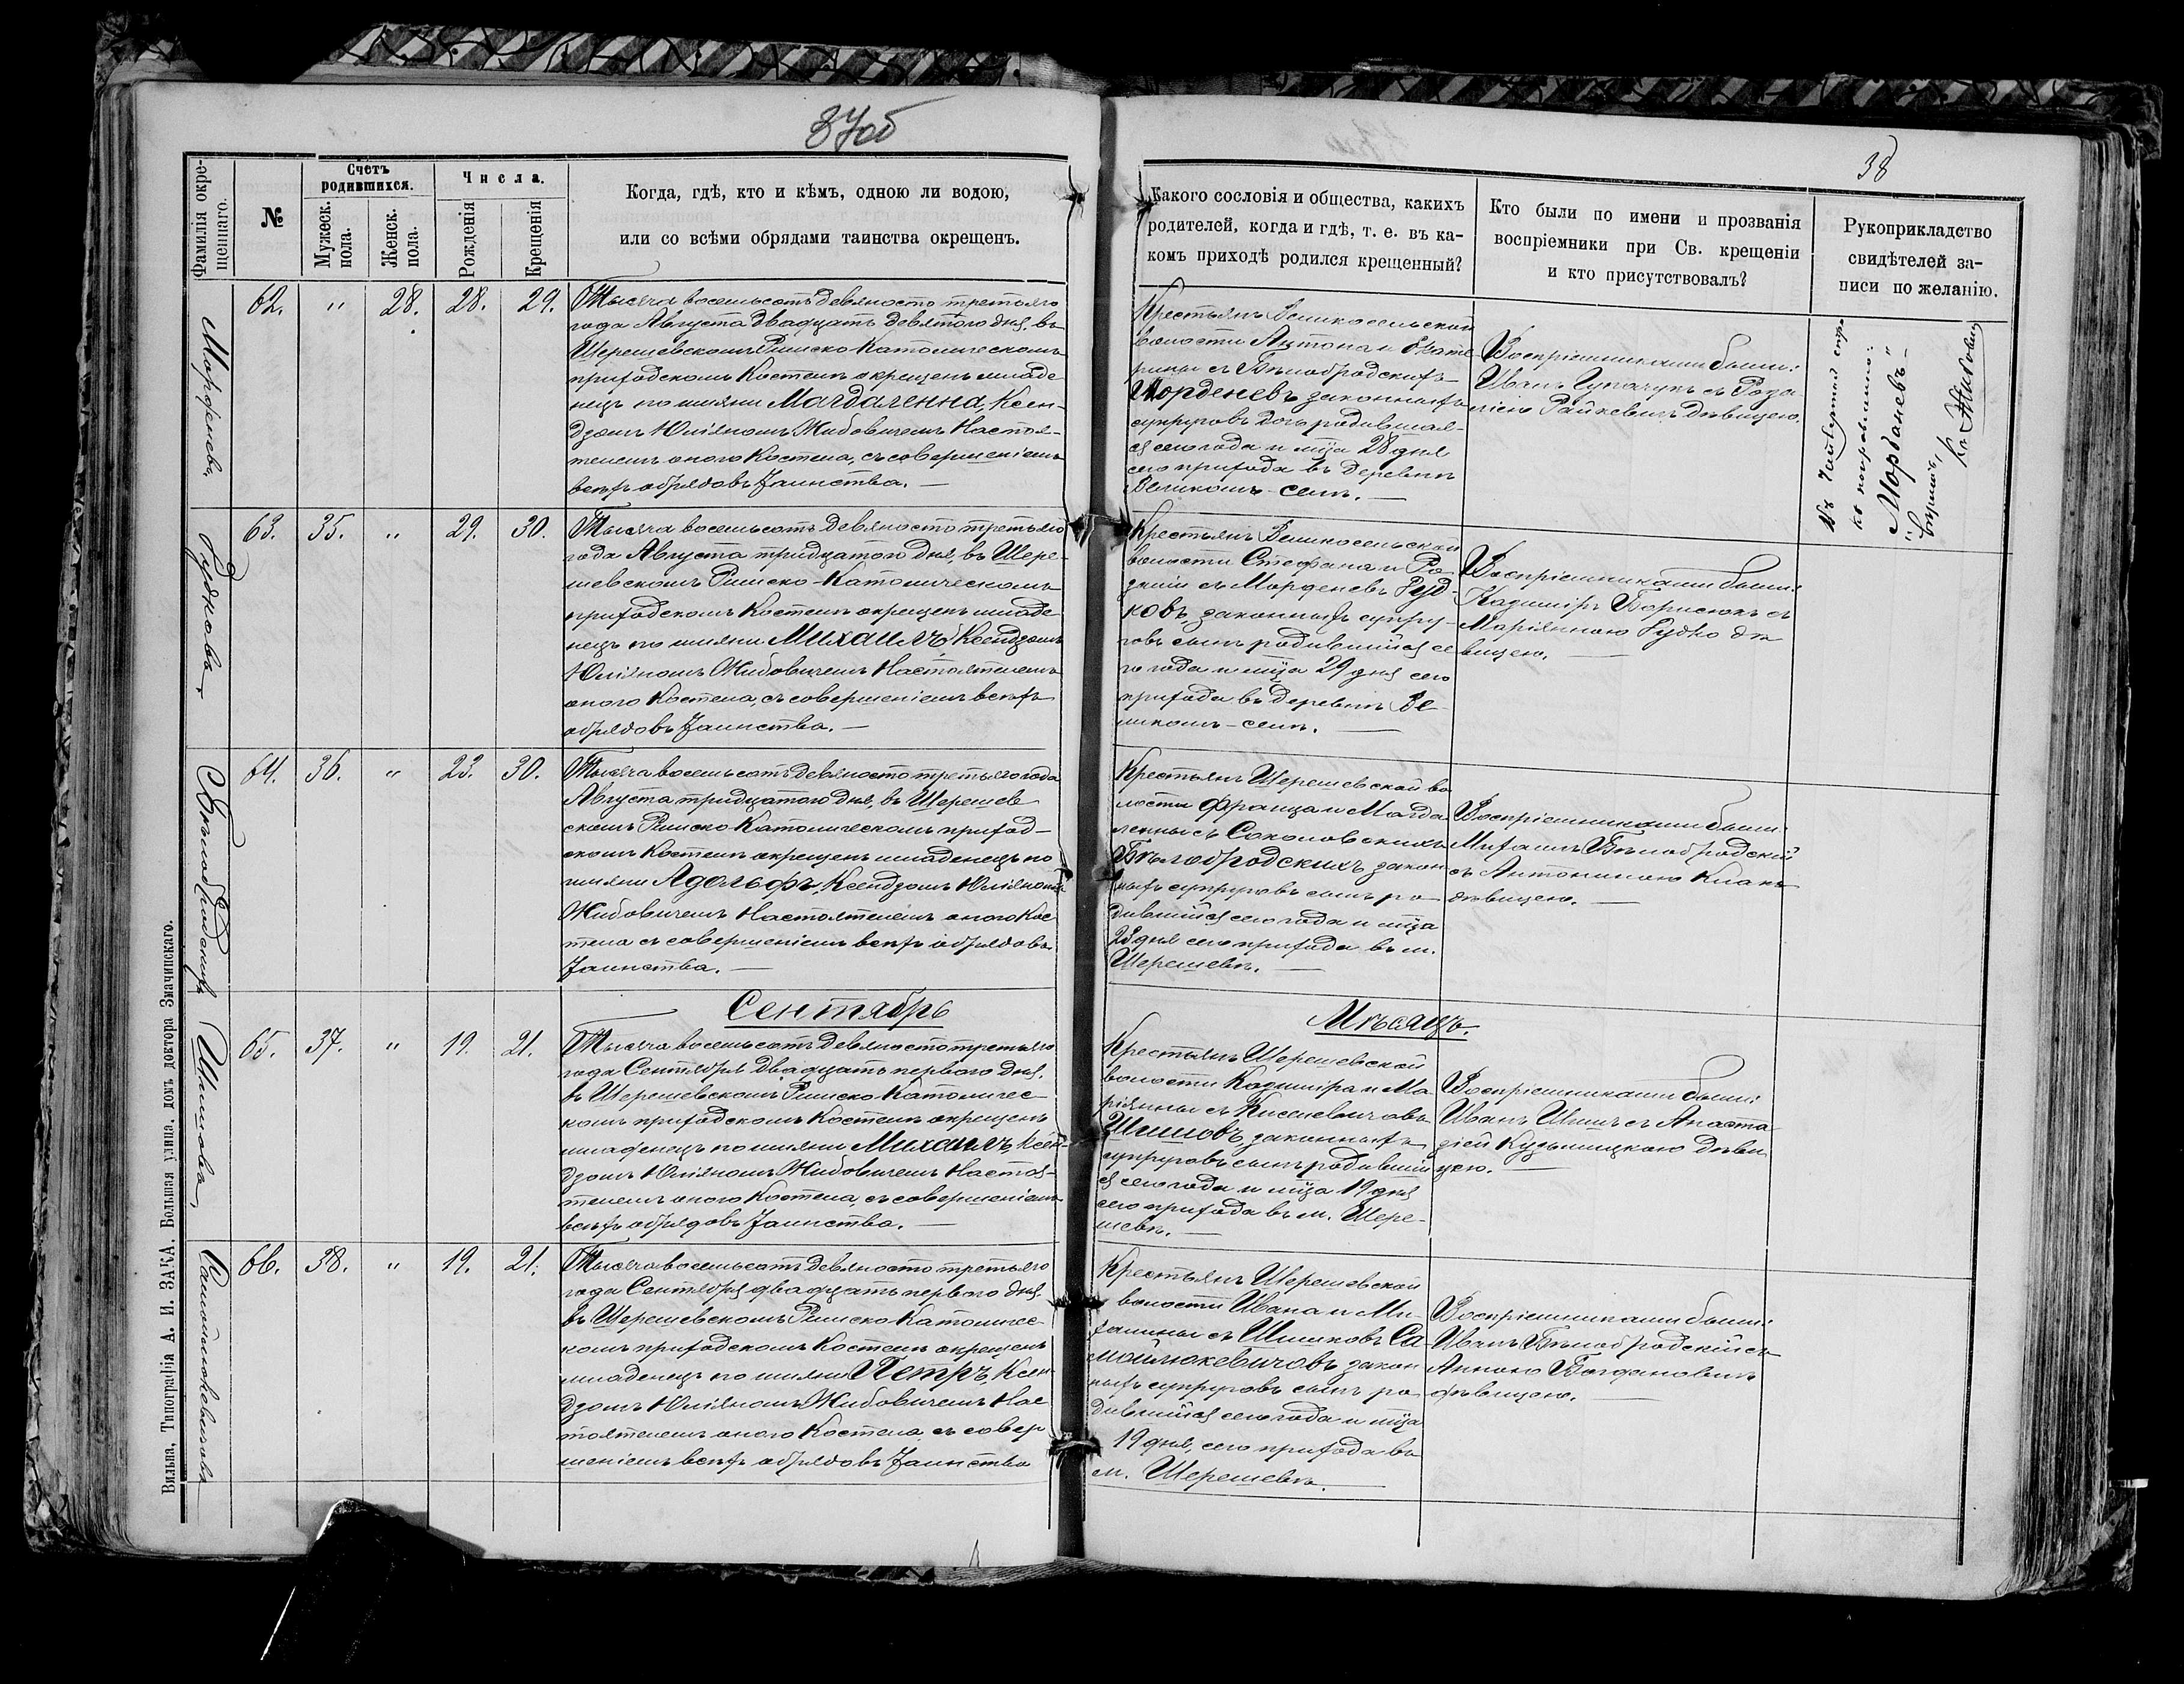 37об
38
Фамилія окре-
щеннаго.
№
Счетъ
родившихся.
Мужеск.
пола.
Женск.
пола.
Числа.
Рожденія
Крещенія
Когда, гдѣ, кто и кѣмъ, одною ли водою,
или со всѣми обрядами таинства окрещенъ.
Какого сословія и общества, какихъ
родителей, когда и гдѣ, т. е. въ ка-
комъ приходѣ родился крещенный?
Кто были по имени и прозванія
воспріемники при Св. крещеніи
и кто присутствовалъ?
Рукоприкладство
свидѣтелей за-
писи по желанію.
62. " 28. 28. 29.
Тысяча восемьсотъ девяносто третьяго
года Августа двадцать девятого дня, въ
Шерешевскомъ Римско-Католическомъ
приходскомъ Костелѣ окрещенъ младе
нецъ по имяни Магдаленна, Ксен-
дзомъ Юліяномъ Жибовичемъ Настоя-
телемъ оного Костела, съ совершеніемъ
всѣхъ обрядовъ Таинства. —
Крестьянъ Великосельской
волости Антона и Екате
рины съ Бѣлобродскихъ
Морденевъ законныхъ
супруговъ дочь родившая-
ся сего года и мца 28 дня
сего прихода въ деревнѣ
Великомъ-селѣ. —
Воспріемниками были:
Иванъ съ Роза
ліею Райкевичъ дѣвицею.
Въ четвертой
"Морданевъ"
вѣрно,
Кс. Жибовичъ
Рудковъ,
63. 35. " 29. 30.
Тысяча восемьсотъ девяносто третьяго
года Августа тридцатого дня, въ Шере-
шевскомъ Римско-Католическомъ
приходскомъ Костелѣ окрещенъ младе
нецъ по имяни Михаилъ, Ксендзомъ
Юліяномъ Жибовичемъ Настоятелемъ
оного Костела, съ совершеніемъ всѣхъ
обрядовъ Таинства. —
Крестьянъ Великосельской
волости Стефана и Ро
заліи съ Морденевъ Руд-
ковъ, законныхъ супру-
говъ сынъ родившійся се
го года и мца 29 дня сего
прихода въ деревнѣ Ве-
ликомъ-селѣ. —
Воспріемниками были:
Казиміръ Борисюкъ съ
Маріянною Рудко дѣ
вицею. —
Бѣлобродскихъ
64. 36. " 23. 30.
Тысяча восемьсотъ девяносто третьяго года
Августа тридцатого дня, въ Шерешев
скомъ Римско-Католическомъ приход-
скомъ Костелѣ окрещенъ младенецъ по
имяни Адольфъ, Ксендзомъ Юліяномъ
Жибовичемъ Настоятелемъ оного Кос
тела съ совершеніемъ всѣхъ обрядовъ
Таинства. —
Крестьянъ Шерешевской во
лости Франца и Магда
ленны съ Соколовскихъ
Бѣлобродскихъ закон
ныхъ супруговъ сынъ ро
дившійся сего года и мца
23 дня сего прихода въ м.
Шерешевѣ. —
Воспріемниками были:
Михаилъ Бѣлобродскій
съ Антониною
дѣвицею. —
Сентябрь
Мѣсяцъ.
Шишовъ,
65. 37. " 19. 21.
Тысяча восемьсотъ девяносто третьяго
года Сентября двадцать первого дня,
въ Шерешевскомъ Римско-Католичес-
комъ приходскомъ Костелѣ окрещенъ
младенецъ по имяни Михаилъ, Ксен-
дзомъ Юліяномъ Жибовичемъ Настоя-
телемъ оного Костела, съ совершеніемъ
всѣхъ обрядовъ Таинства. —
Крестьянъ Шерешевской
волости Казиміра и Ма
ріянны съ Киселевичовъ
Шишовъ, законныхъ
супруговъ сынъ родившій
ся сего года и мца 19 дня
сего прихода въ м. Шере-
шевѣ. —
Воспріемниками были:
Иванъ Шишъ съ Анаста
зіей Кузьмицкою дѣви
цею. —
Самойлюкевичовъ
66. 38. " 19. 21.
Тысяча восемьсотъ девяносто третьяго
года Сентября двадцать первого дня,
въ Шерешевскомъ Римско-Католичес-
комъ приходскомъ Костелѣ окрещенъ
младенецъ по имяни Петръ, Ксен
дзомъ Юліяномъ Жибовичемъ Нас
тоятелемъ оного Костела, съ совер
шеніемъ всѣхъ обрядовъ Таинства
Крестьянъ Шерешевской
волости Ивана и Ми-
халины съ Шишковъ Са-
мойлюкевичовъ закон
ныхъ супруговъ сынъ ро
дившійся сего года и мца
19 дня, сего прихода въ
м. Шерешевѣ. —
Воспріемниками были:
Иванъ Бѣлобродскій съ
Анною Богдановичъ
дѣвицею. —
Вильна, Типографія А. И. ЗАКА. Большая улица, домъ доктора Значинскаго.